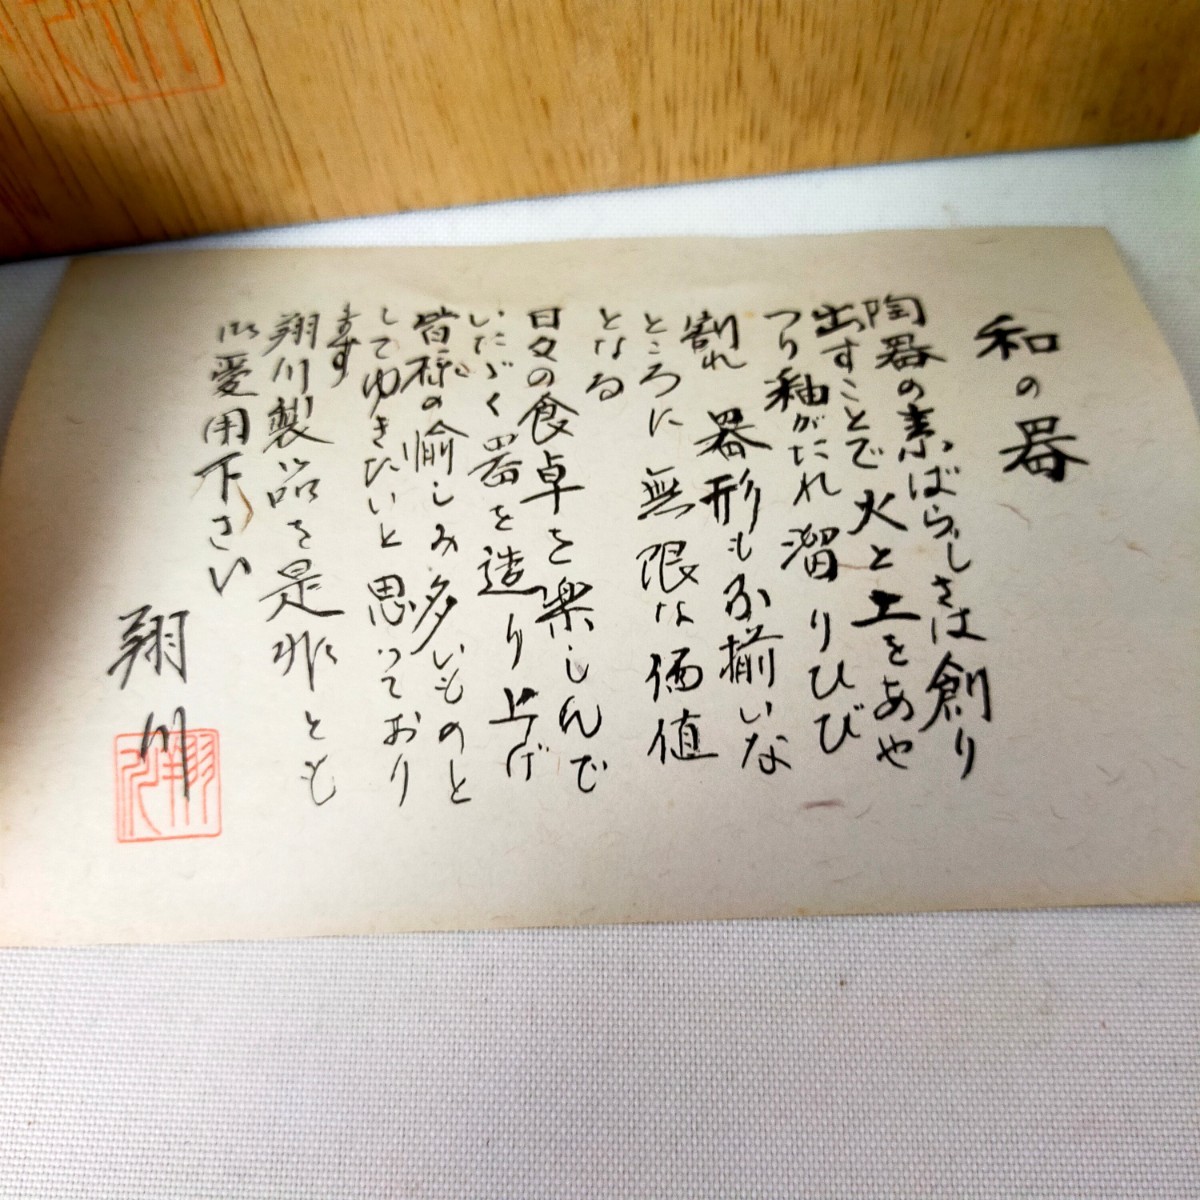 和の器
陶器の素ばらしさは創り
出すことで火と土をあや
つり釉がたれ溜りひび
割れ 器形も不揃いな
ところに無限な価値
となる
日々の食卓を楽しんで
いたゞく器を造り上げ
皆様の愉しみ多いものと
してゆきたいと思っており
ます
翔川製品を是非とも
御愛用下さい
翔川